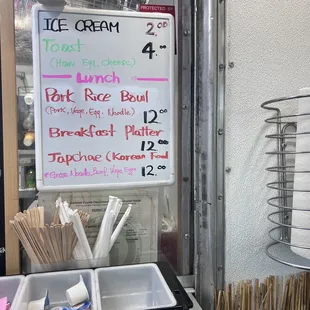 PROTECTED BY
ICE CREAM 2.00
Toast 4.00
(Ham, Egg, Cheese)
Lunch
Pork Rice Boul
(Pork, Vege, Egg, Noodle) 12.00
Breakfast Platter
12.00
Japchae (Korean Food
Noodle, Beef, Vege, Egg) 12.00